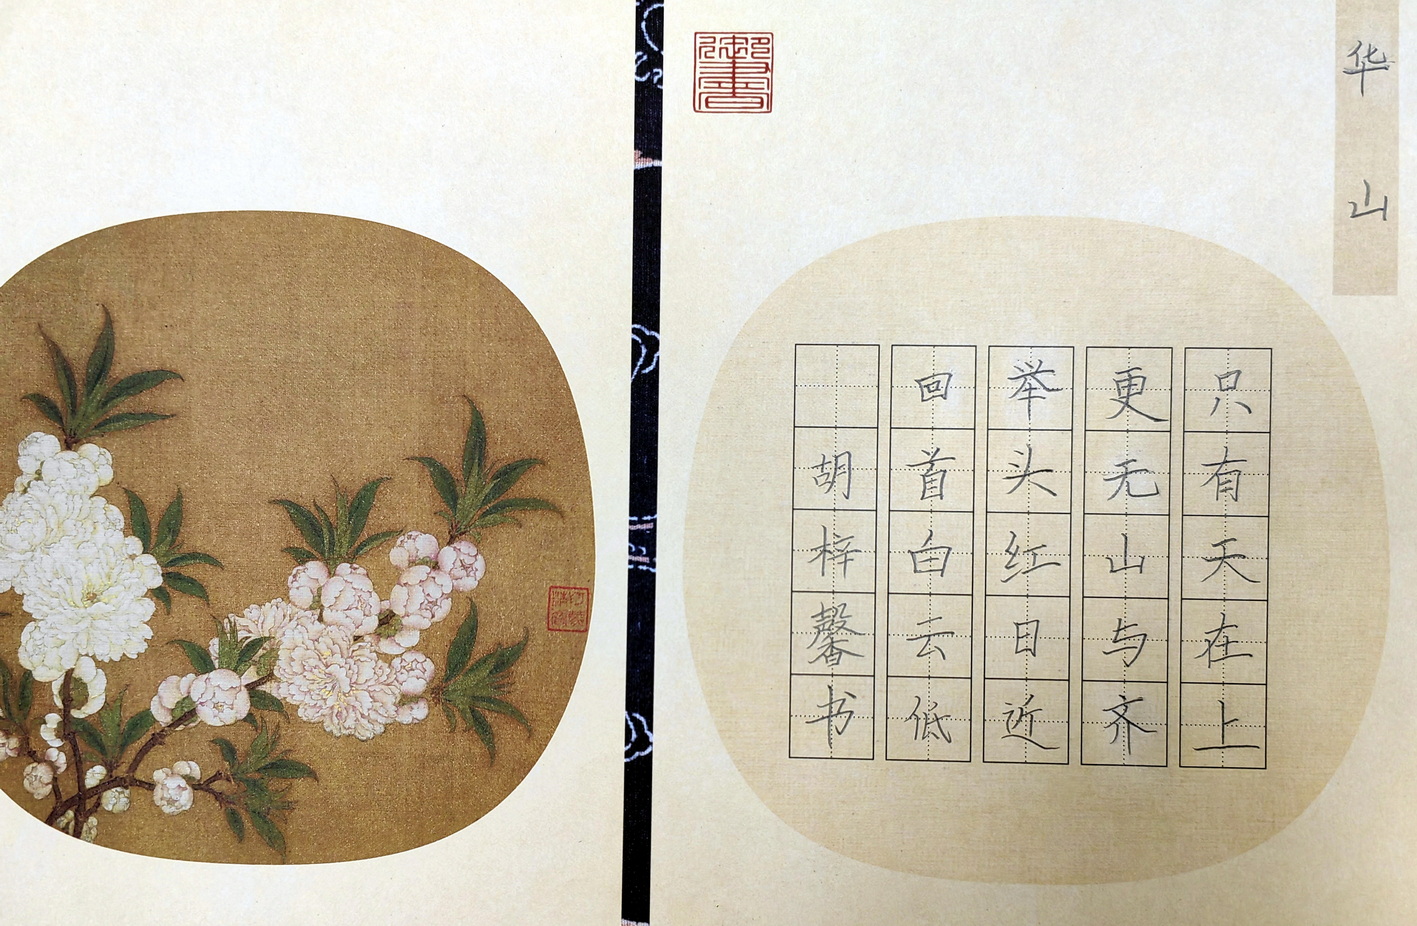 华山
只有天在上
更无山与齐
举头红日近
回首白云低
胡梓馨书